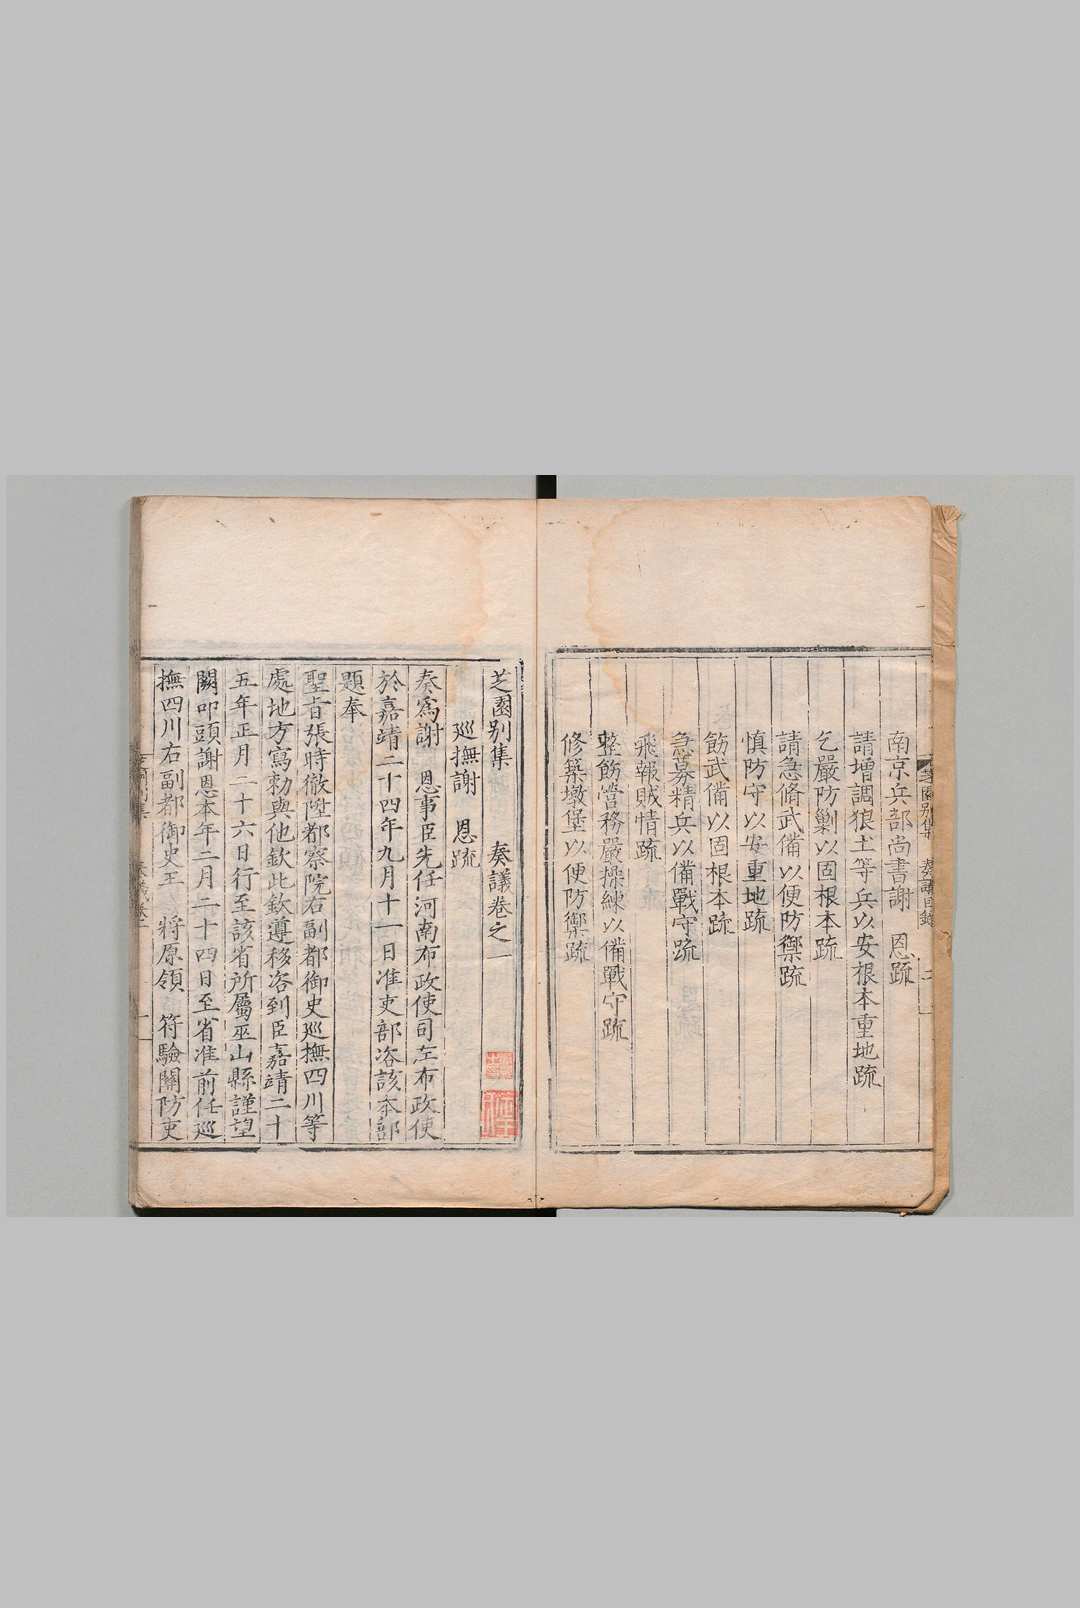 南京兵部尚書謝　恩疏
請增調狼土等兵以安根本重地疏
乞嚴防剿以固根本疏
請急脩武備以便防禦疏
慎防守以安重地疏
飭武備以固根本疏
急募精兵以備戰守疏
飛報賊情疏
整飭營務嚴操練以備戰守疏
修築墩堡以便防禦疏
芝園别集　奏議卷之一
巡撫謝　恩疏
奏爲謝　恩事臣先任河南布政使司左布政使
於嘉靖二十四年九月十一日准吏部咨該本部
題奉
聖旨張時徹陞都察院右副都御史巡撫四川等
處地方寫勑與他欽此欽遵移咨到臣嘉靖二十
五年正月二十六日行至該省所屬巫山縣謹望
闕叩頭謝恩本年二月二十四日至省准前任巡
撫四川右副都御史王　將原領　符驗關防吏